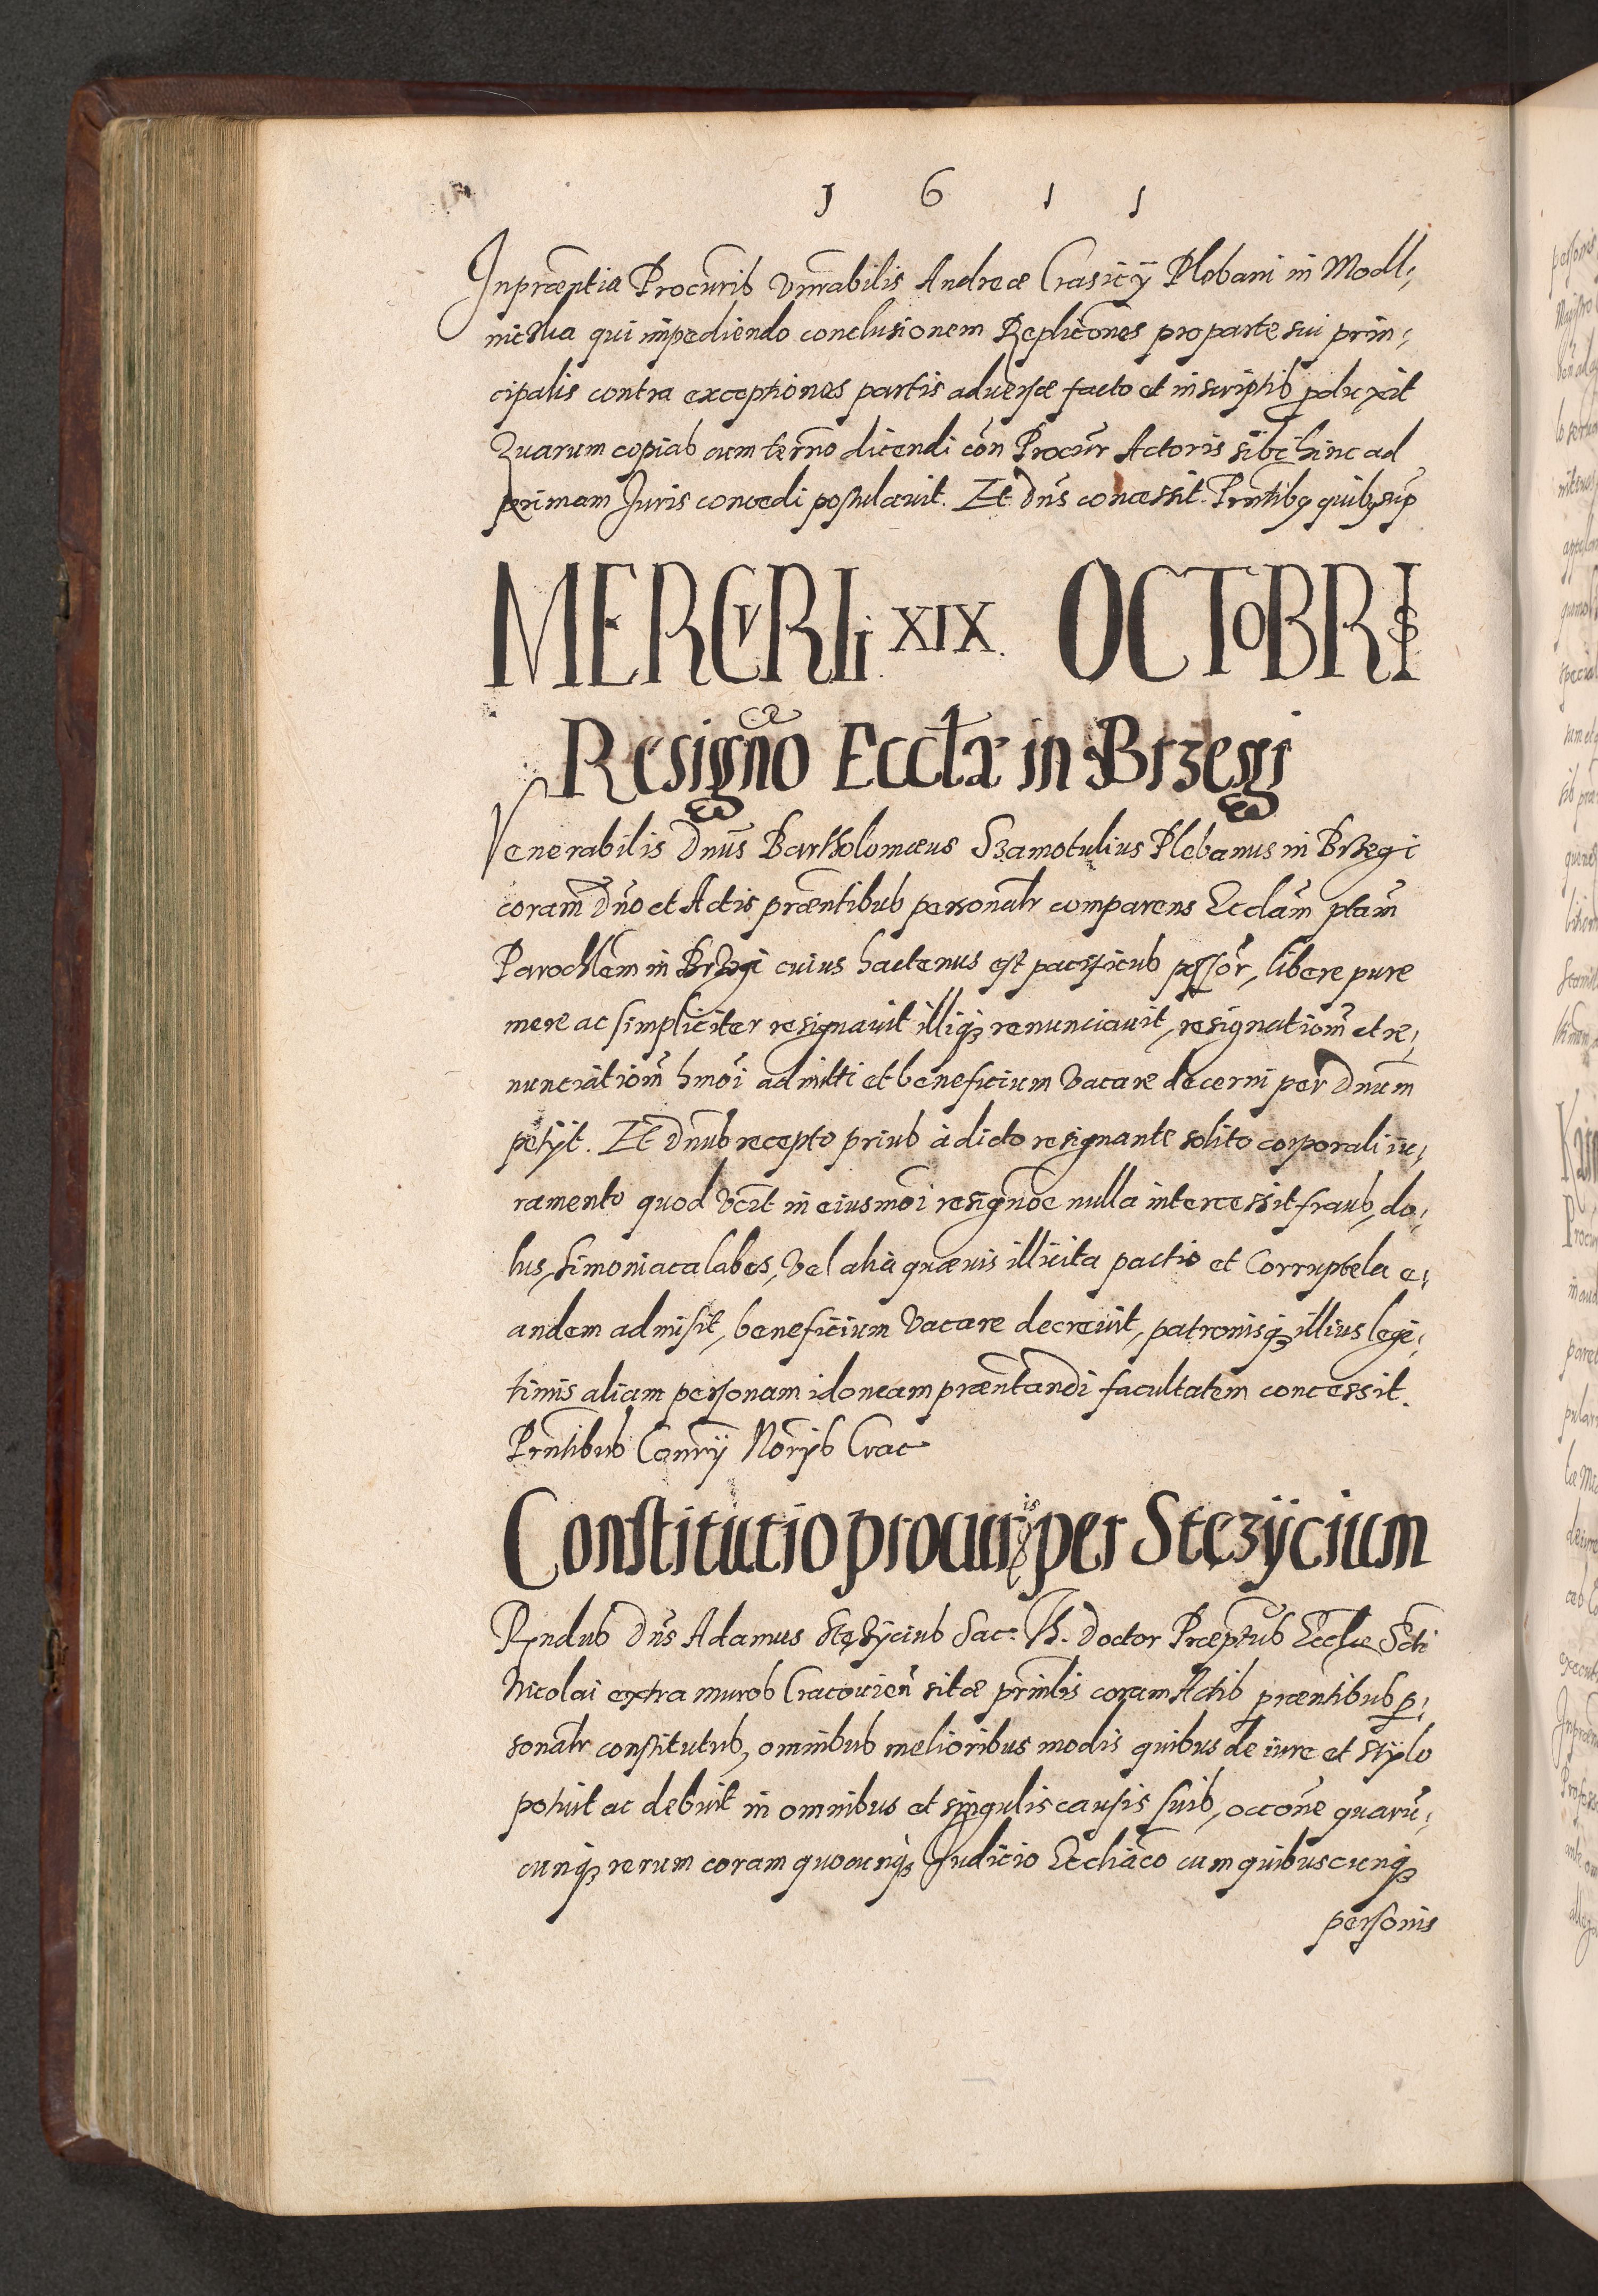 1611
Inpraentia Procuris Vmrabilis Andreae Crasicÿ Plebani in Modl,
nicza qui impediendo conclusionem Replicones pro parte sui prin,
cipalis contra exceptiones partis aduersae facto et in scriptis pduxit
Quarum copias cum termo dicendi con Procur Actoris sibi hinc ad
primam Juris concedi postulauit. Et Dns concessit. Prntibq quibq sup
MERCVRIi XIX. OCTOBRIS
Resigno Ecctae in Brzegi
Venerabilis Dnus Bartholomaeus Szamotulius Plebanus in Brzegi
coram Dno et Actis praentibus personalr comparens Ecclam ptam
Parochlem in Brzegi cuius hactenus est pacificus possor, libere pure
mere ac simpliciter resignauit illiq; renunciauit, resignatiom et re,
nunciatiom hmoi admitti et beneficium Vacare decerni per Dnum
petÿt. Et Dnus recepto prius à dicto resignante solito corporali iu,
ramento quod Vcit in eiusmoi resignoe nulla intercessit fraus, do,
lus, simoniaca labes, Vel alia quaeuis illicita pactio et Corruptela e,
andem admisit, beneficium Vacare decreuit, patronisq; illius legi,
timis aliam personam idoneam praentandi facultatem concessit.
Prntibus Canrÿ Norÿs Crac
Constitutio procuris per Stęzÿcium
Rndus Dns Adamus Stęzÿcius Sac: Th. Doctor Praeptus Ecclae Scti
Nicolai extra muros Cracouien sitae prinlis coram Actis praentibus p,
sonalr constitutus, omnibus melioribus modis quibus de iure et stÿlo
potuit ac debuit in omnibus et singulis causis suis, occone quaru,
cunq; rerum coram quocunq; Judicio Ecchiaco cum quibuscunq;
personis